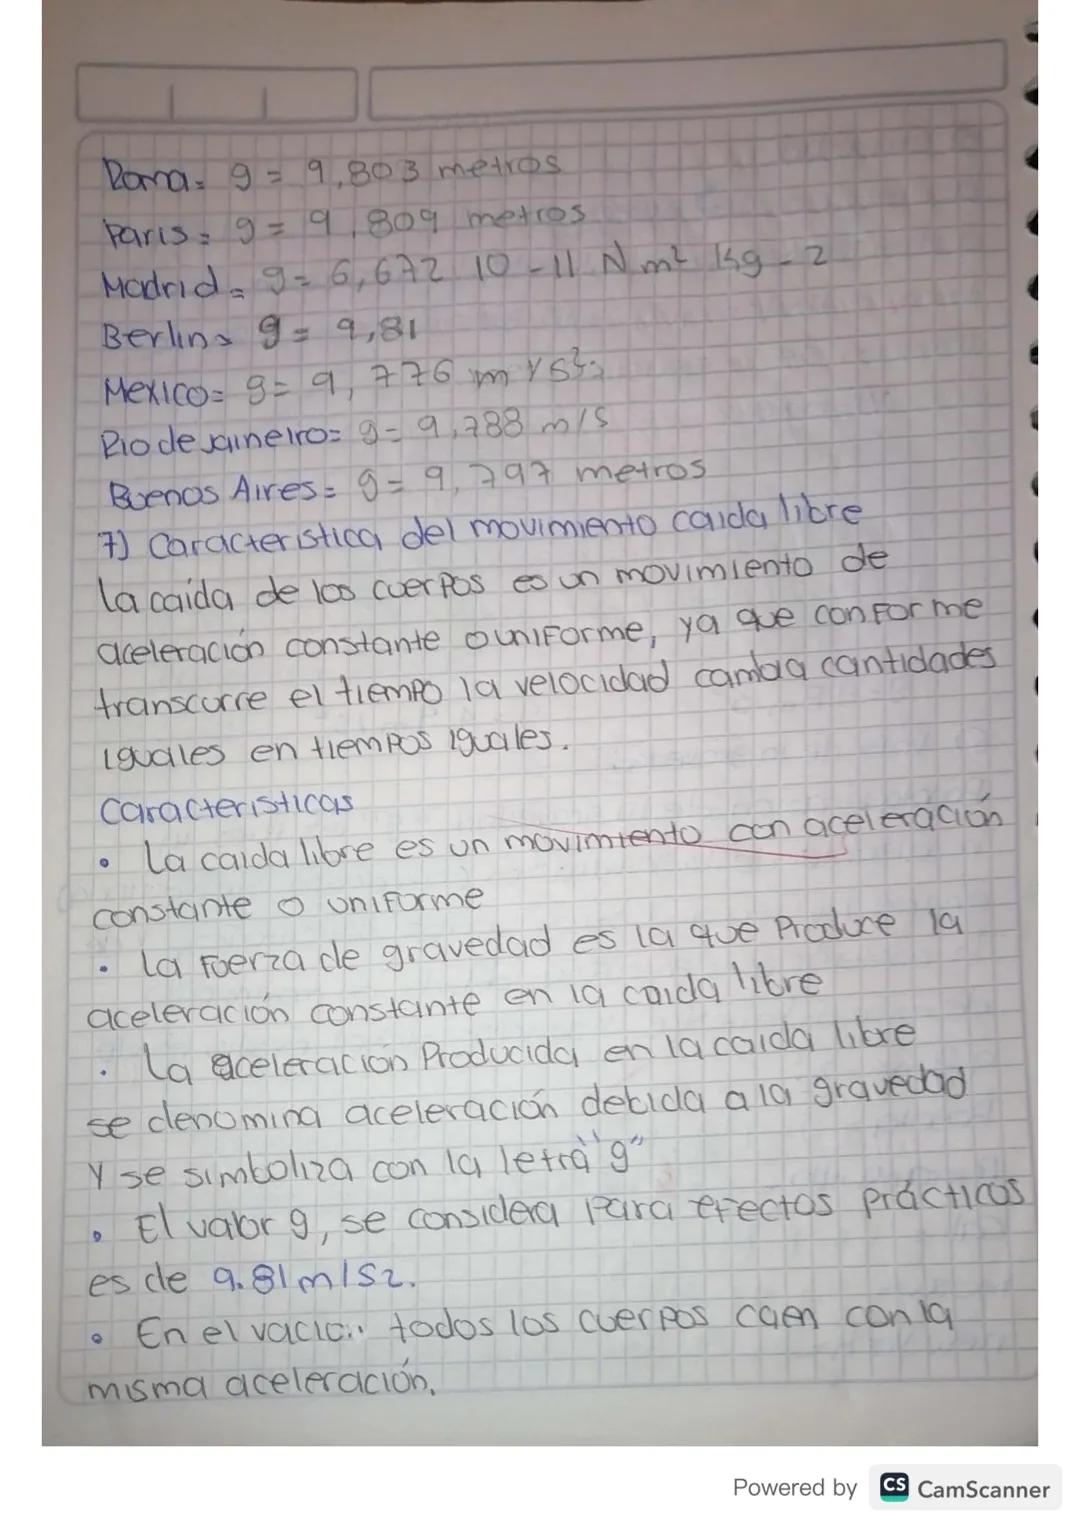 Roma= g = 9,803 metros
Paris= g = 9,809 metros
Madrid= g= 6,672 10 -11 N m² Kg - 2
Berlin= g = 9,81
Mexico= g= 9, 776 m y s²;
Rio de Janeiro= g= 9,788 m/s
Buenos Aires= g= 9,797 metros
7) Caracteristica del movimiento caida libre
La caida de los cuerpos es un movimiento de
aceleración constante o uniforme, ya que conforme
transcurre el tiempo la velocidad cambia cantidades
iguales en tiempos iguales.
Caracteristicas
• La caida libre es un movimiento con aceleración
constante o uniforme
• La fuerza de gravedad es la que Produce la
aceleración constante en la caida libre
• La aceleracion Producida en la caida libre
se denomina aceleración debida a la gravedad
y se simboliza con la letra "g"
• El valor g, se considera para efectos prácticos
es de 9.81m/s2.
• En el vacio: todos los cuerpos caen con la
misma aceleración.
Powered by CS CamScanner